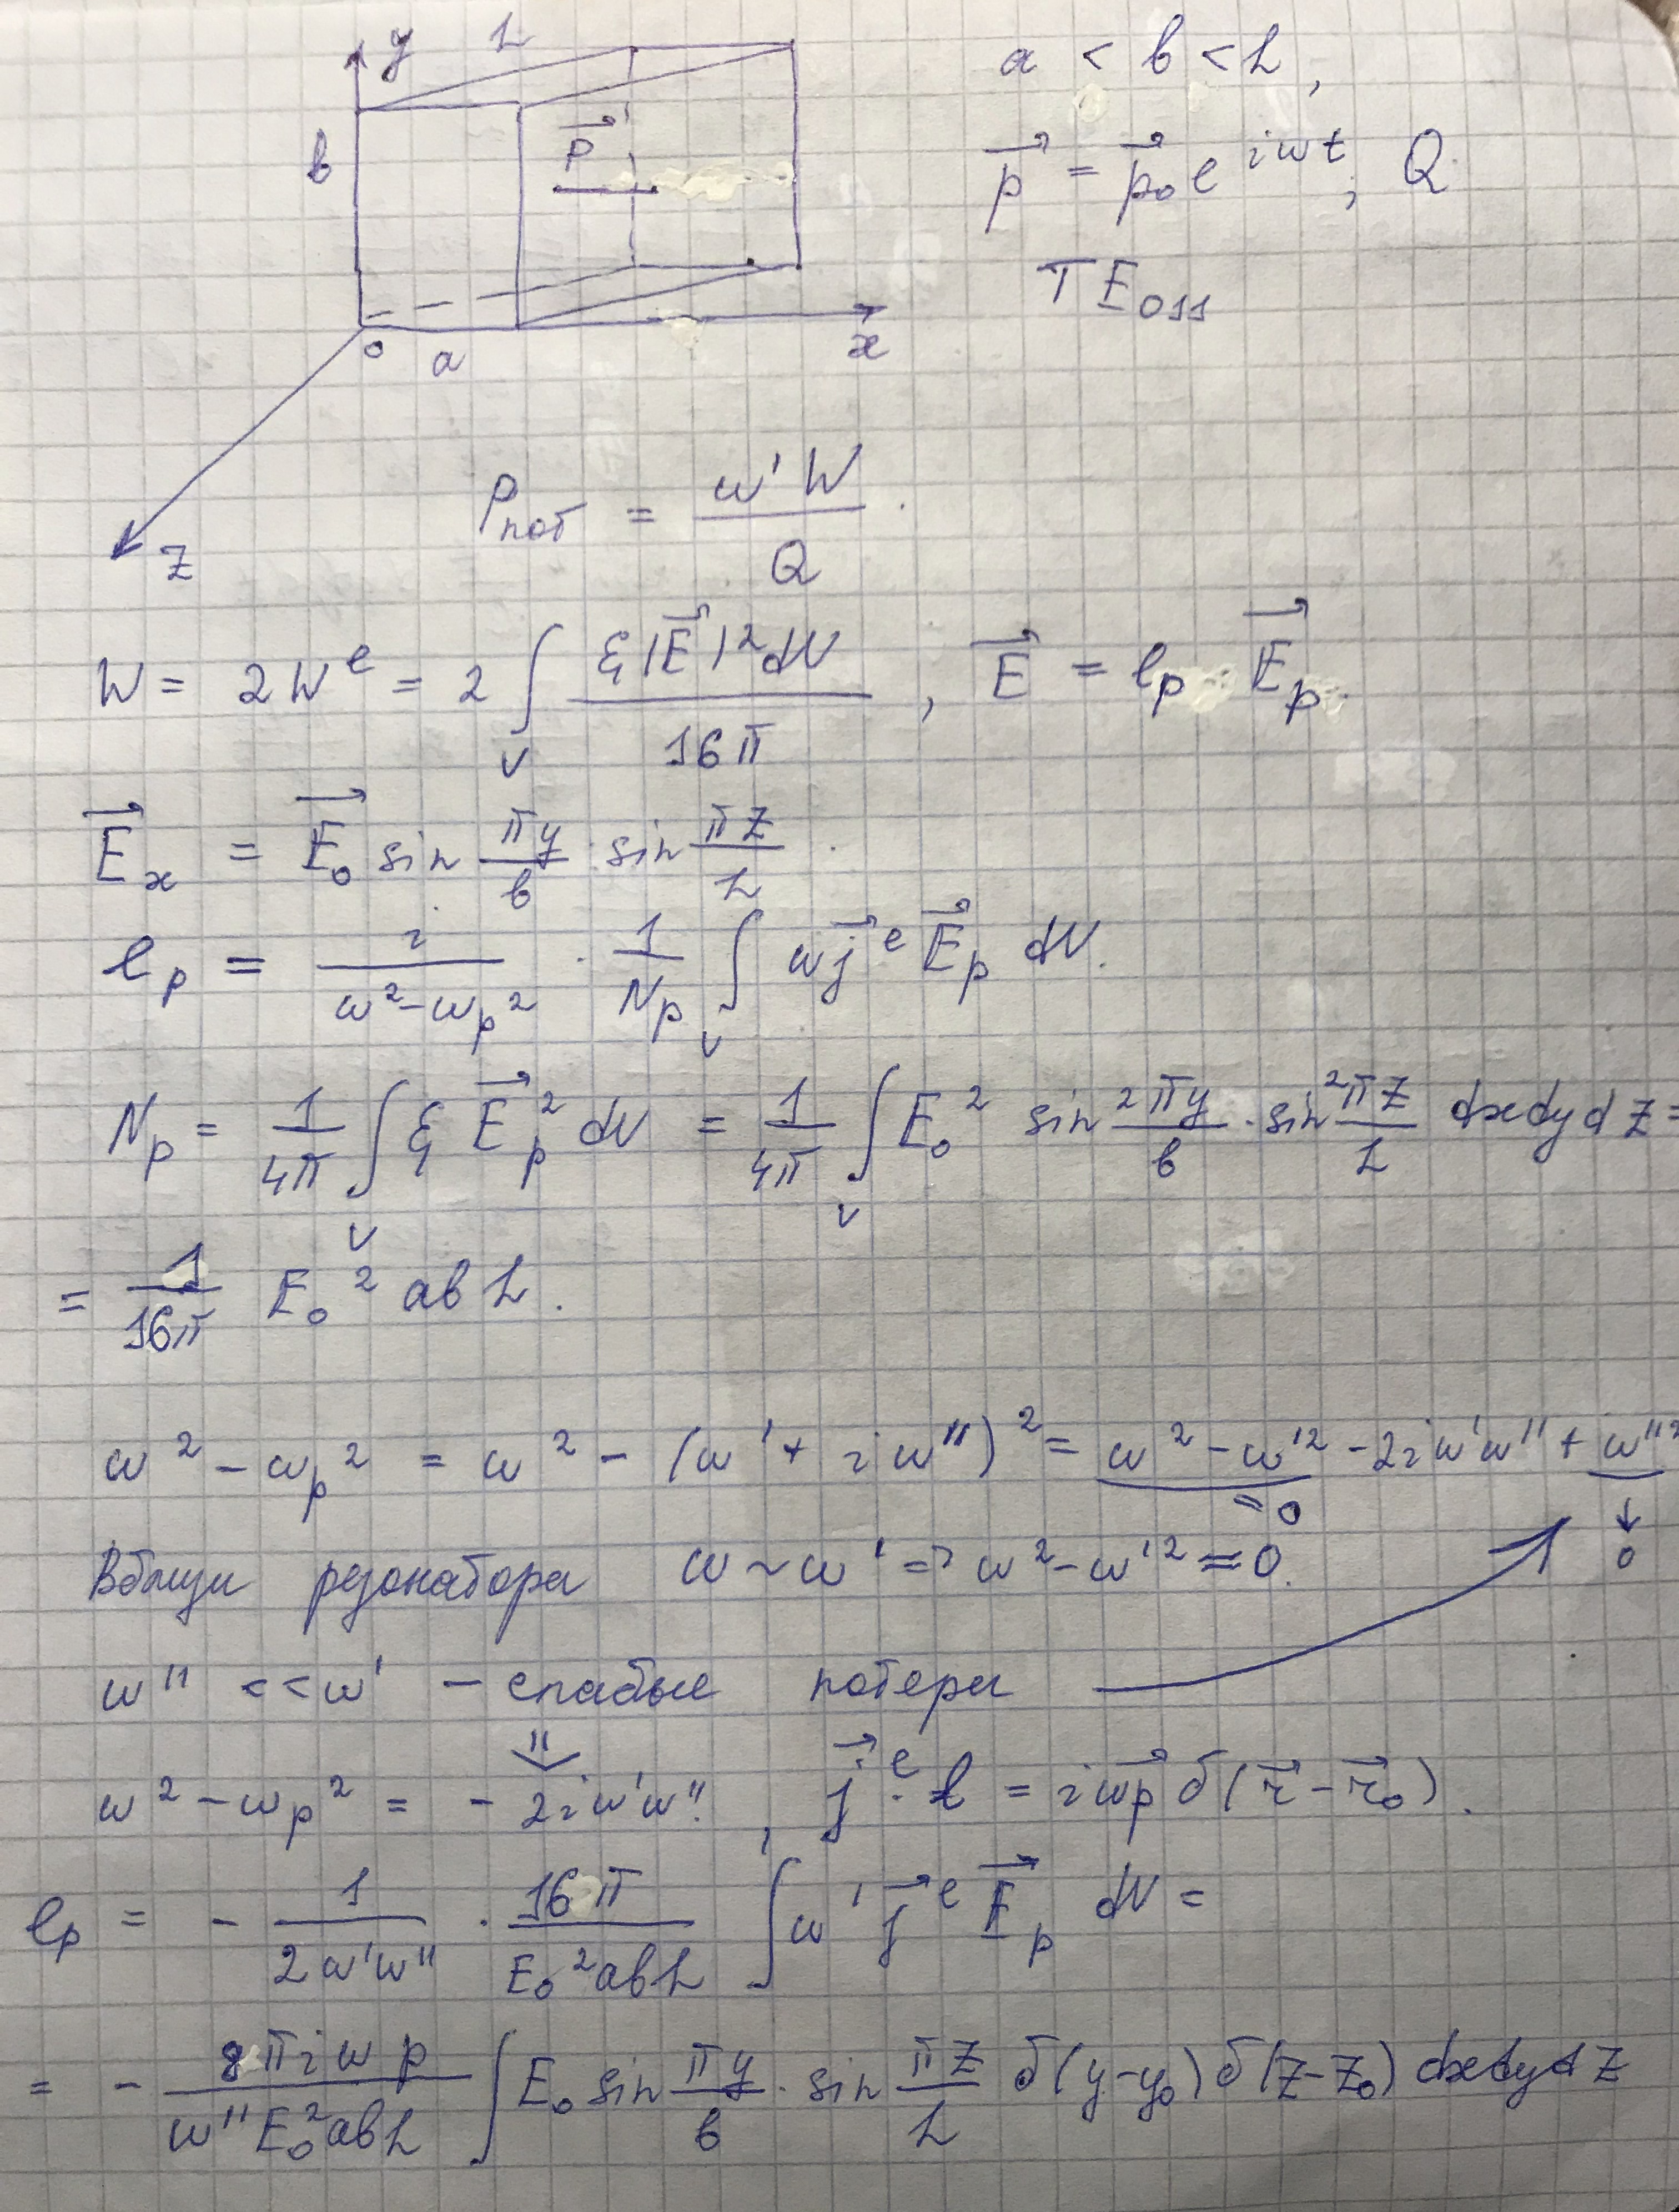 y L
b
p⃗
0 a x
z
a < b < L,
p⃗ = p⃗₀ e^{iωt}, Q
TE₀₁₁
P_пот = ω'W / Q.
W = 2W^e = 2 ∫_V ε|E⃗|² dV / 16π , E⃗ = e_p E⃗_p.
E⃗_x = E⃗₀ sin πy/b · sin πz/L.
e_p = i / (ω² - ω_p²) · 1/N_p ∫_V ω j⃗^e E⃗_p dV.
N_p = 1/4π ∫_V ε E⃗_p² dV = 1/4π ∫_V E₀² sin² πy/b · sin² πz/L dxdydz =
= 1/16π E₀² abL.
ω² - ω_p² = ω² - (ω' + iω'')² = ω² - ω'² - 2iω'ω'' + ω''²
= 0 ↓ 0
Вблизи резонатора ω ~ ω' => ω² - ω'² ≈ 0.
ω'' << ω' - слабые потери
ω² - ω_p² = - 2iω'ω''. , j⃗^e · = iωp⃗ δ(r⃗ - r⃗₀).
e_p = - 1 / 2ω'ω'' · 16π / E₀²abL ∫ ω' j⃗^e E⃗_p dV =
= - 8πiωp / ω''E₀²abL ∫ E₀ sin πy/b · sin πz/L δ(y-y₀) δ(z-z₀) dxdydz